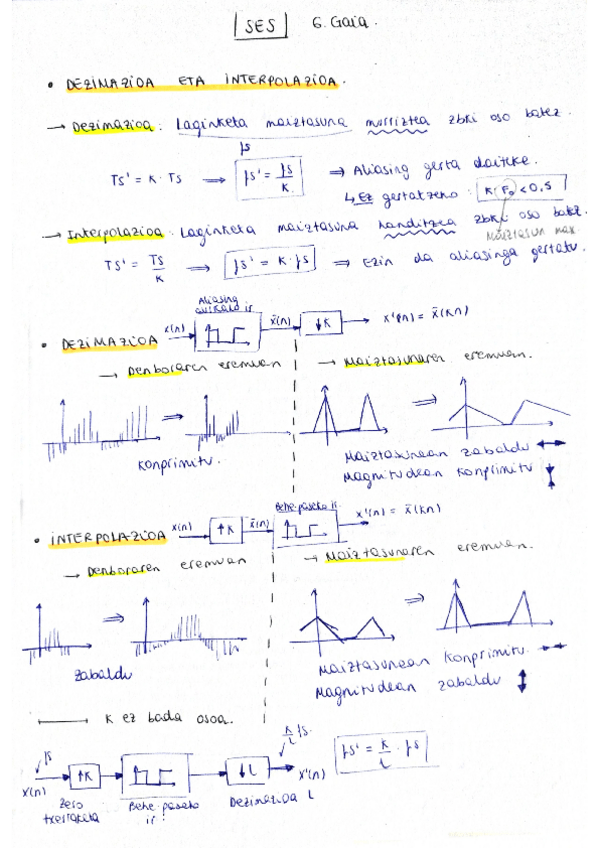 SES 6. Gaia.
• DEZIMAZIOA ETA INTERPOLAZIOA.
→ Dezimazioa: Laginketa maiztasuna murriztea zbki oso batez.
fs
Ts' = K · Ts ⇒ fs' = fs/K ⇒ Aliasing gerta daiteke.
↳ Ez gertatzeko: K · F0 < 0,5
Maiztasun max
→ Interpolazioa: Laginketa maiztasuna handitzea zbki oso batez.
Ts' = Ts/K ⇒ fs' = K · fs ⇒ Ezin da aliasinga gertatu.
Aliasing
• DEZIMAZIOA x(n) x̄(n) ↓K x'(n) = x̄(Kn)
→ Denboraren eremuan → Maiztasunaren eremuan.
Konprimitu.
Maiztasunean zabaldu
Magnitudean konprimitu
• INTERPOLAZIOA x(n) ↑K x̄(n) Behe-paseko ir. x'(n) = x̄(Kn)
→ Denboraren eremuan → Maiztasunaren eremuan.
zabaldu
Maiztasunean konprimitu.
Magnitudean zabaldu
K ez bada osoa.
fs K/L fs
x(n) ↑K ↓L x'(n) fs' = K/L · fs
Zero txertaketa Behe-paseko ir. Dezimazioa L